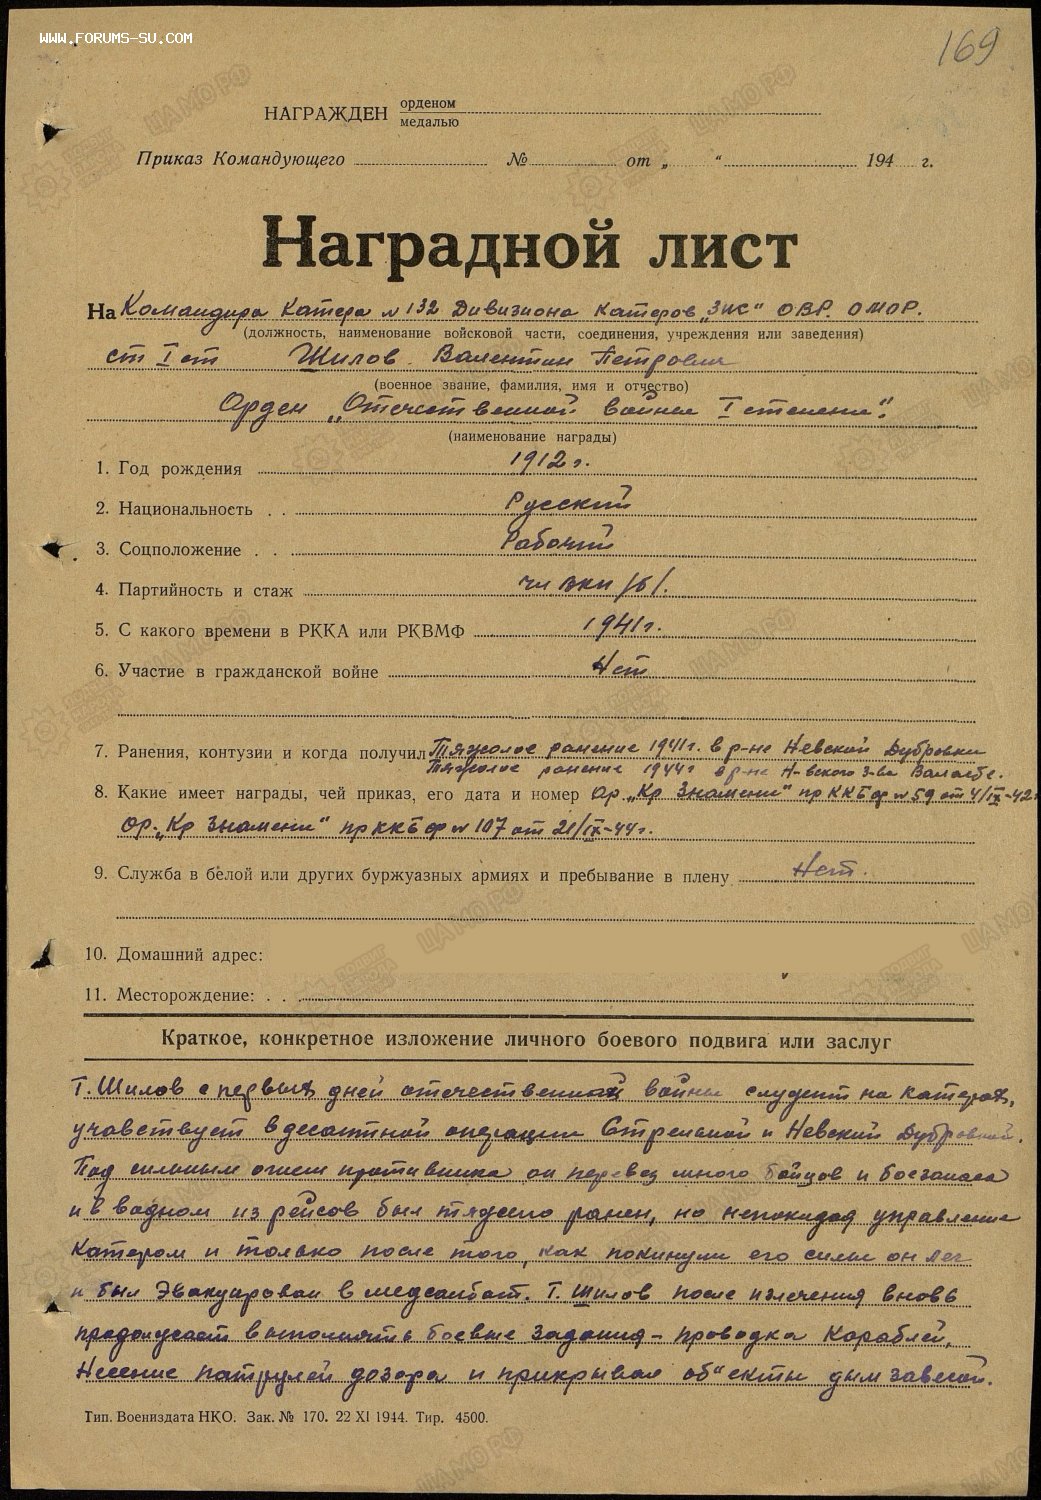 WWW.FORUMS-SU.COM
169
НАГРАЖДЕН орденом
медалью
Приказ Командующего № от „ “ 194 г.
Наградной лист
На Командира Катера № 132 Дивизиона Катеров „ЗИС“ ОВР. ОМОР.
(должность, наименование войсковой части, соединения, учреждения или заведения)
ст I ст Шилов Валентин Петрович
(военное звание, фамилия, имя и отчество)
Орден „Отечественной войны I степени“.
(наименование награды)
1. Год рождения 1912 г.
2. Национальность . . Русский
3. Соцположение . . Рабочий
4. Партийность и стаж чл ВКП /б/.
5. С какого времени в РККА или РКВМФ 1941 г.
6. Участие в гражданской войне Нет
7. Ранения, контузии и когда получил Тяжолое ранение 1941 г. в р-не Невской Дубровки
Тяжолое ранение 1944 г в р-не Н-вского з-ва
8. Какие имеет награды, чей приказ, его дата и номер Ор. „Кр Знамени“ пр ККБФ № 59 от 4/IX-42г
Ор. „Кр Знамени“ пр ККБФ № 107 от 21/IX-44 г.
9. Служба в белой или других буржуазных армиях и пребывание в плену Нет.
10. Домашний адрес:
11. Месторождение: . . .
Краткое, конкретное изложение личного боевого подвига или заслуг
Т. Шилов с первых дней отечественной войны служит на катерах,
учавствует в десантной операции Стрельной и Невский Дубровкой.
Под сильным огнем противника он перевез много бойцов и боезапаса
и в водном из рейсов был тяжело ранен, но непокидал управление
катером и только после того, как покинули его силы он лег
и был Эвакуирован в медсанбат. Т. Шилов после излечения вновь
продолжает выполнять боевые задания - проводка Кораблей,
Несение патрулей дозора и прикрывал об"екты дым завесой.
Тип. Воениздата НКО. Зак. № 170. 22 XI 1944. Тир. 4500.